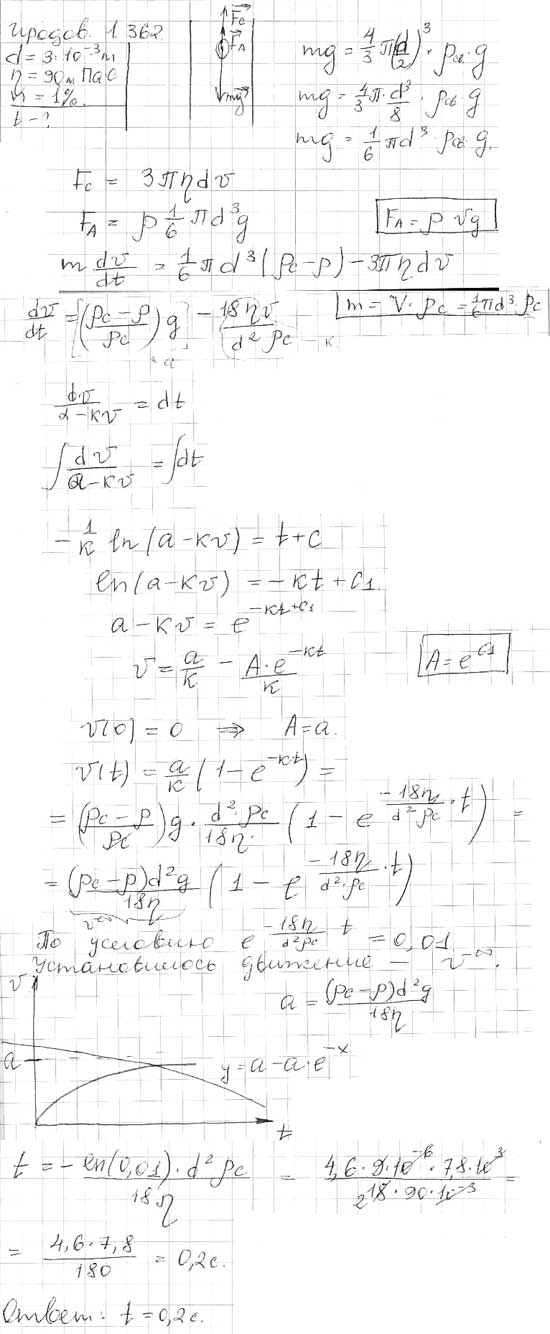 Иродов. 1.362.
d = 3·10⁻³ м
η = 90 м Па·с
n = 1%.
t - ?
F⃗c
F⃗A
mg⃗
mg = 4/3 π(d/2)³ · ρсв · g
mg = 4/3 π · d³/8 · ρсв · g
mg = 1/6 πd³ · ρсв · g.
Fc = 3πηdv
FA = ρ 1/6 πd³g
FA = ρVg
m dv/dt = 1/6 πd³(ρc - ρ) - 3πηdv
dv/dt = ((ρc - ρ)/ρc) g - 18ηv/(d²ρc) - к
a
m = V·ρc = 1/6 πd³ρc
dv/(a - кv) = dt
∫ dv/(a - кv) = ∫dt
- 1/к ln(a - кv) = t + c
ln(a - кv) = -кt + c₁
a - кv = e^(-кt + c₁)
v = a/к - A·e^(-кt)/к
A = e^(c₁)
v(0) = 0 ⇒ A = a.
v(t) = a/к (1 - e^(-кt)) =
= ((ρc - ρ)/ρc) g · d²·ρc/18η · (1 - e^(-18η/(d²ρc) · t)) =
= (ρc - ρ)d²g/18η (1 - e^(-18η/(d²·ρc) · t))
v∞
По условию e^(-18η/(d²ρc) t) = 0,01
Установилось движение - v∞.
a = (ρc - ρ)d²g/18η
v
a
y = a - a·e^(-x)
t
t = - ln(0,01)·d²ρc/18η = 4,6·9·10⁻⁶·7,8·10³/(218·90·10⁻³) =
= 4,6·7,8/180 = 0,2 с.
Ответ: t = 0,2 с.